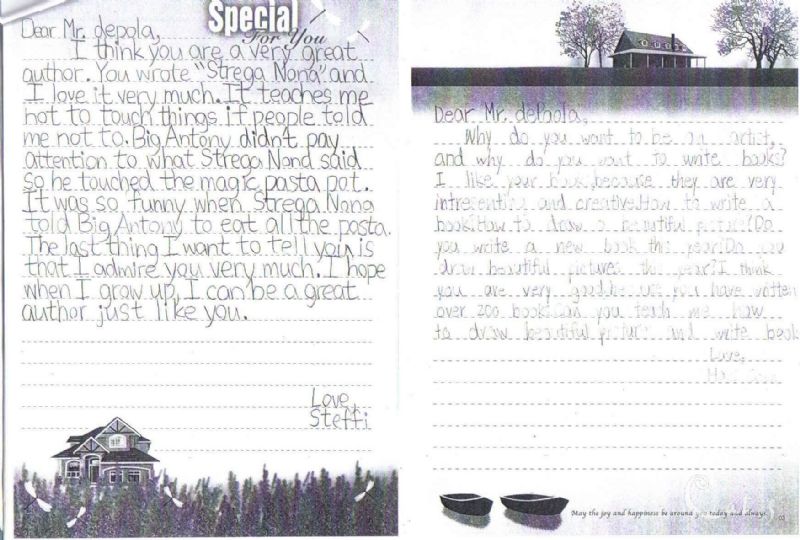 Special
For You
Dear Mr. depola,
I think you are a very great
author. You wrote "Strega Nona" and
I love it very much. It teaches me
not to touch things if people told
me not to. Big Antony didn't pay
attention to what Strega Nona said
so he touched the magic pasta pot.
It was so funny when Strega Nona
told Big Antony to eat all the pasta.
The last thing I want to tell you is
that I admire you very much. I hope
when I grow up, I can be a great
author just like you.
Love,
Steffi
Dear Mr. dePaola,
Why do you want to be an artist,
and why do you want to write book?
I like your book,because they are very
intresenting and creative.How to write a
book?How to draw a beautiful picture?Do
you write a new book this year?Do you
draw beautiful pictures this year?I think
you are very good,because you have written
over 200 book.Can you teach me how
to draw beautiful picture and write book
Love,
May the joy and happiness be around you today and always.